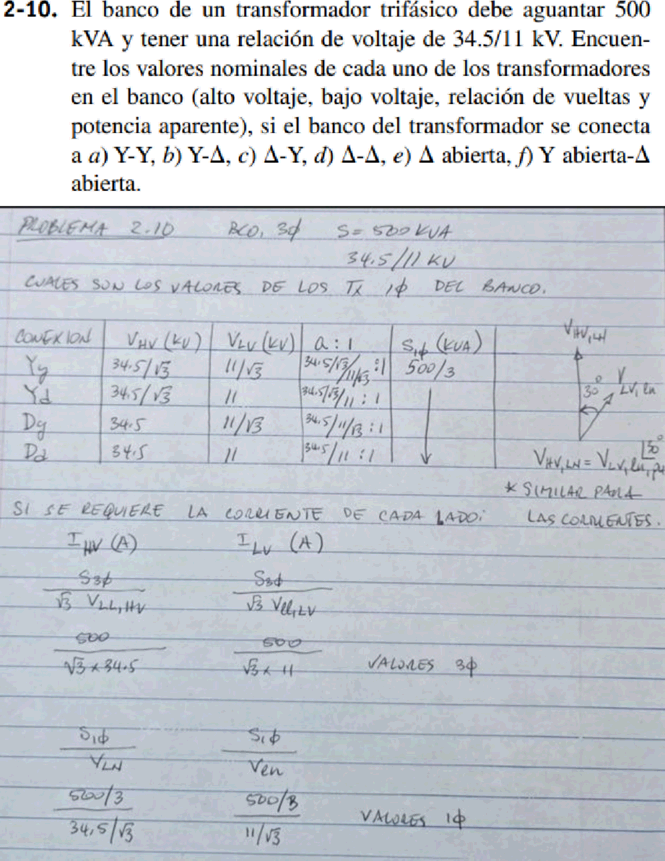 2-10. El banco de un transformador trifásico debe aguantar 500
kVA y tener una relación de voltaje de 34.5/11 kV. Encuen-
tre los valores nominales de cada uno de los transformadores
en el banco (alto voltaje, bajo voltaje, relación de vueltas y
potencia aparente), si el banco del transformador se conecta
a a) Y-Y, b) Y-Δ, c) Δ-Y, d) Δ-Δ, e) Δ abierta, f) Y abierta-Δ
abierta.
PROBLEMA 2.10 BCO, 3ϕ S= 500 KVA
34.5/11 KV
CUALES SON LOS VALORES DE LOS TX 1ϕ DEL BANCO.
CONEXION V_HV (KV) V_LV (KV) a : 1 S_1ϕ (KVA)
Yy 34.5/√3 11/√3 34.5/√3/11/√3 :1 500/3
Yd 34.5/√3 11 34.5/√3/11 : 1
Dy 34.5 11/√3 34.5/11/√3 : 1
Dd 34.5 11 34.5/11 :1
V_HV,LN
30° V_LV,ln
V_HV,LN = V_LV,ln,pu ∠30°
* SIMILAR PARA
LAS CORRIENTES.
SI SE REQUIERE LA CORRIENTE DE CADA LADO:
I_HV (A) I_LV (A)
S3ϕ / √3 V_LL,HV S3ϕ / √3 Vll,LV
500 / √3 x 34.5 500 / √3 x 11 VALORES 3ϕ
S1ϕ / V_LN S1ϕ / Vln
500/3 / 34.5/√3 500/3 / 11/√3 VALORES 1ϕ